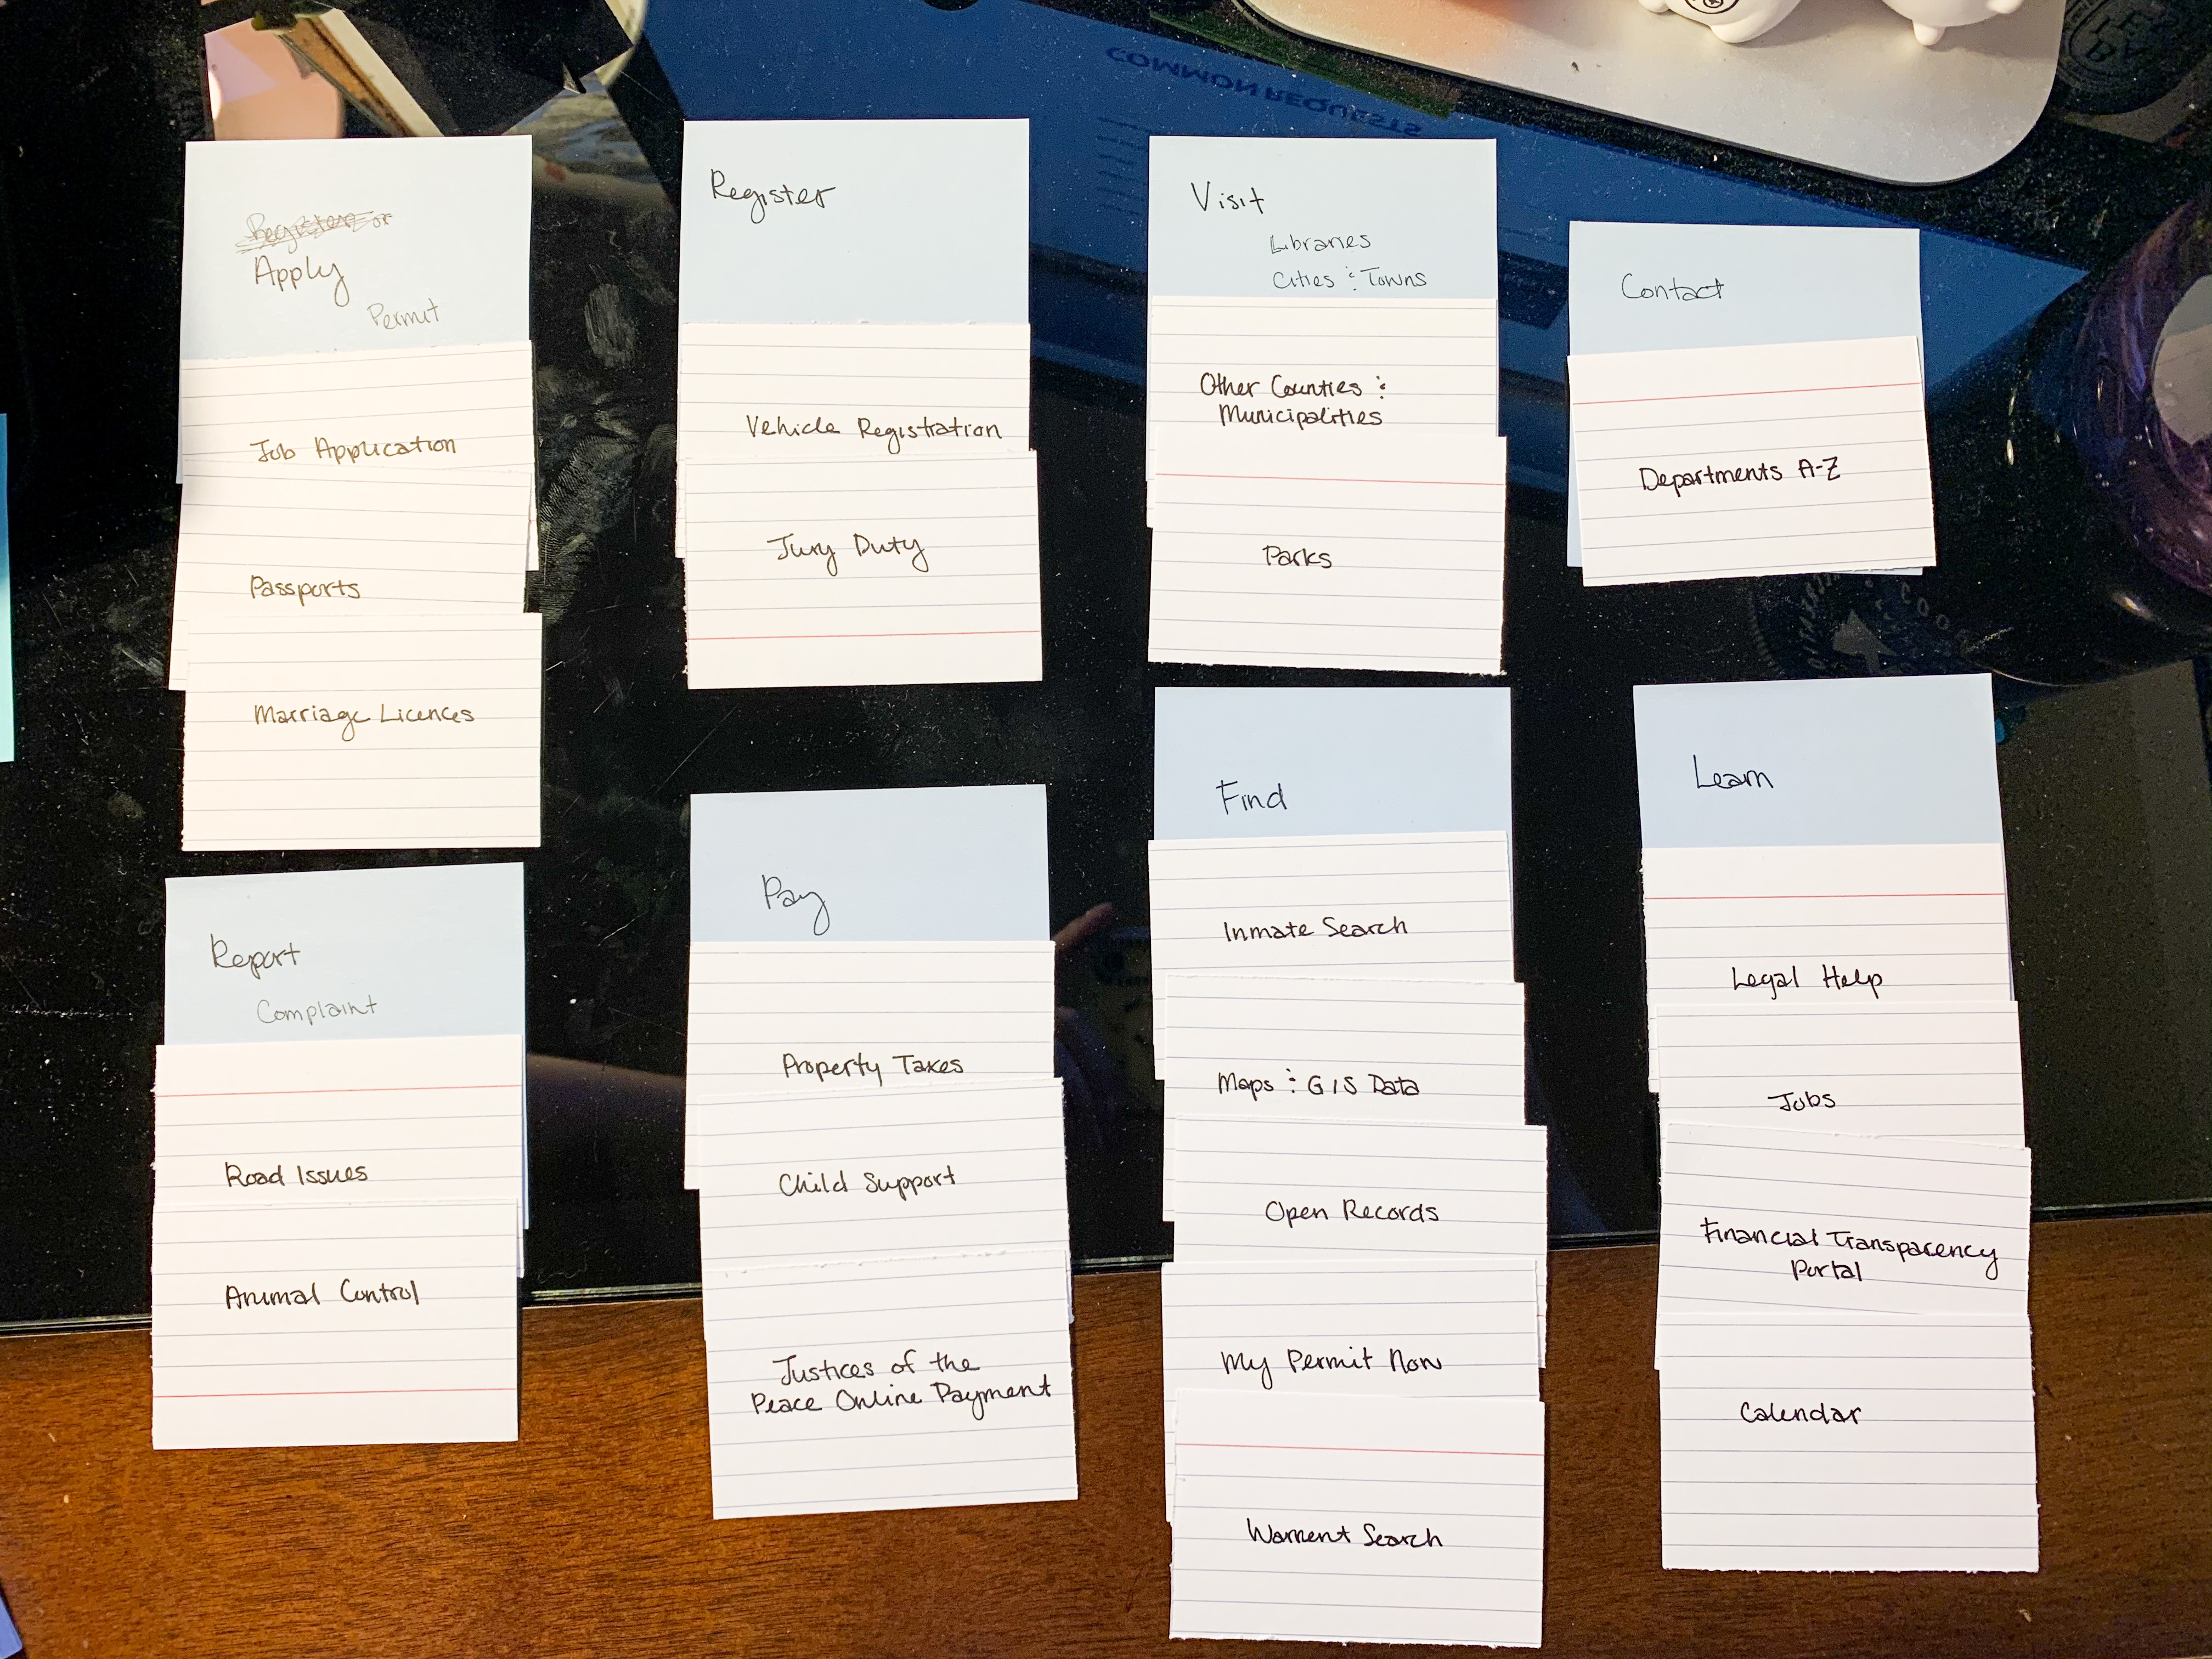 COMMON REQUESTS
Register or
Apply
Permit
Job Application
Passports
Marriage Licences
Register
Vehicle Registration
Jury Duty
Visit
Libraries
Cities & Towns
Other Counties &
Municipalities
Parks
Contact
Departments A-Z
Report
Complaint
Road Issues
Animal Control
Pay
Property Taxes
Child Support
Justices of the
Peace Online Payment
Find
Inmate Search
Maps & GIS Data
Open Records
My Permit Now
Warrent Search
Learn
Legal Help
Jobs
Financial Transparency
Portal
Calendar